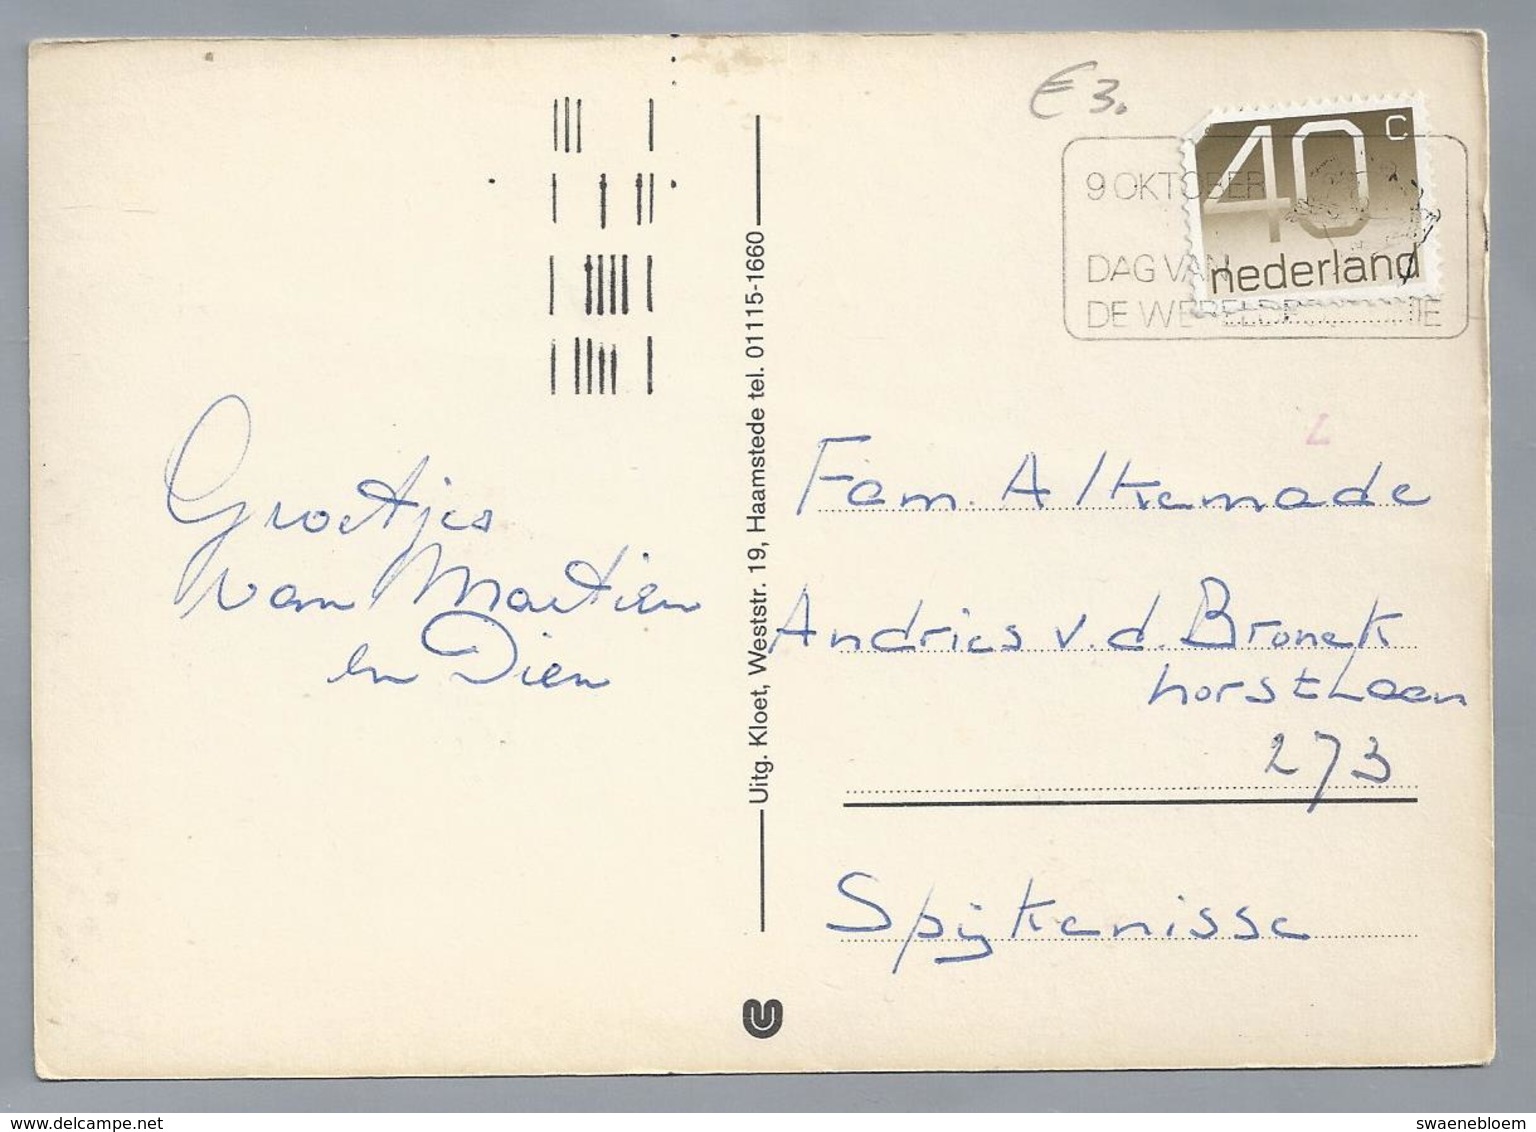 € 3.
40 c
nederland
9 OKTOBER
DAG VAN
DE WERELD
Groetjes
van Martien
en Dien
Uitg. Kloet, Weststr. 19, Haamstede tel. 01115-1660
Fam. Alkemade
Andries v.d. Bronck
horstLaan
273
Spijkenisse
delcampe.net
swaenebloem